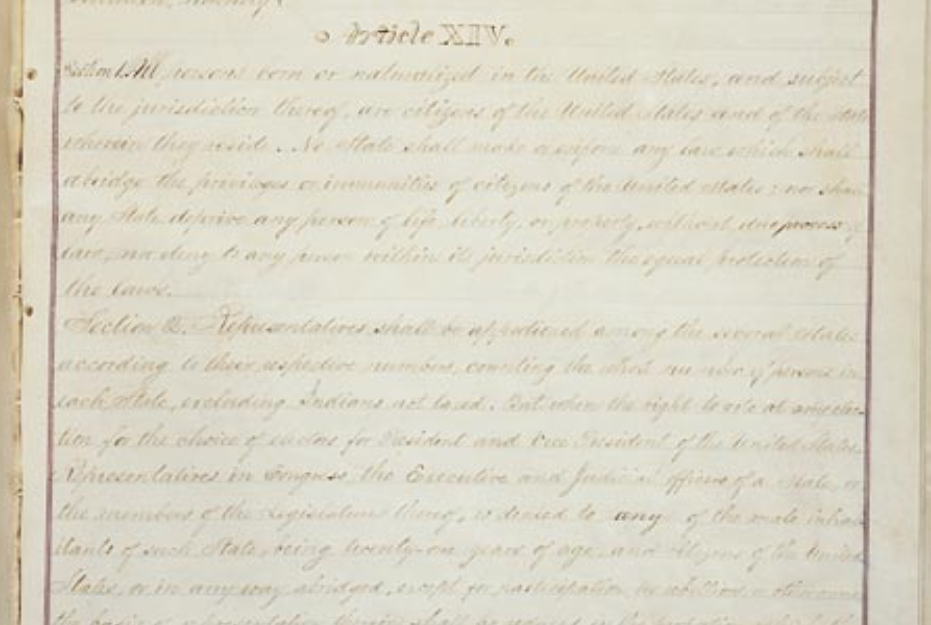 Article XIV.
Section 1. All persons born or naturalized in the United States, and subject
to the jurisdiction thereof, are citizens of the United States and of the State
wherein they reside. No State shall make or enforce any law which shall
abridge the privileges or immunities of citizens of the United States; nor shall
any State deprive any person of life, liberty, or property, without due process of
law; nor deny to any person within its jurisdiction the equal protection of
the laws.
Section 2. Representatives shall be apportioned among the several States
according to their respective numbers, counting the whole number of persons in
each State, excluding Indians not taxed. But when the right to vote at any elec-
tion for the choice of electors for President and Vice President of the United States,
Representatives in Congress, the Executive and Judicial officers of a State, or
the members of the Legislature thereof, is denied to any of the male inhabi-
tants of such State, being twenty-one years of age, and citizens of the United
States, or in any way abridged, except for participation in rebellion, or other crime,
the basis of representation therein shall be reduced in the proportion which the